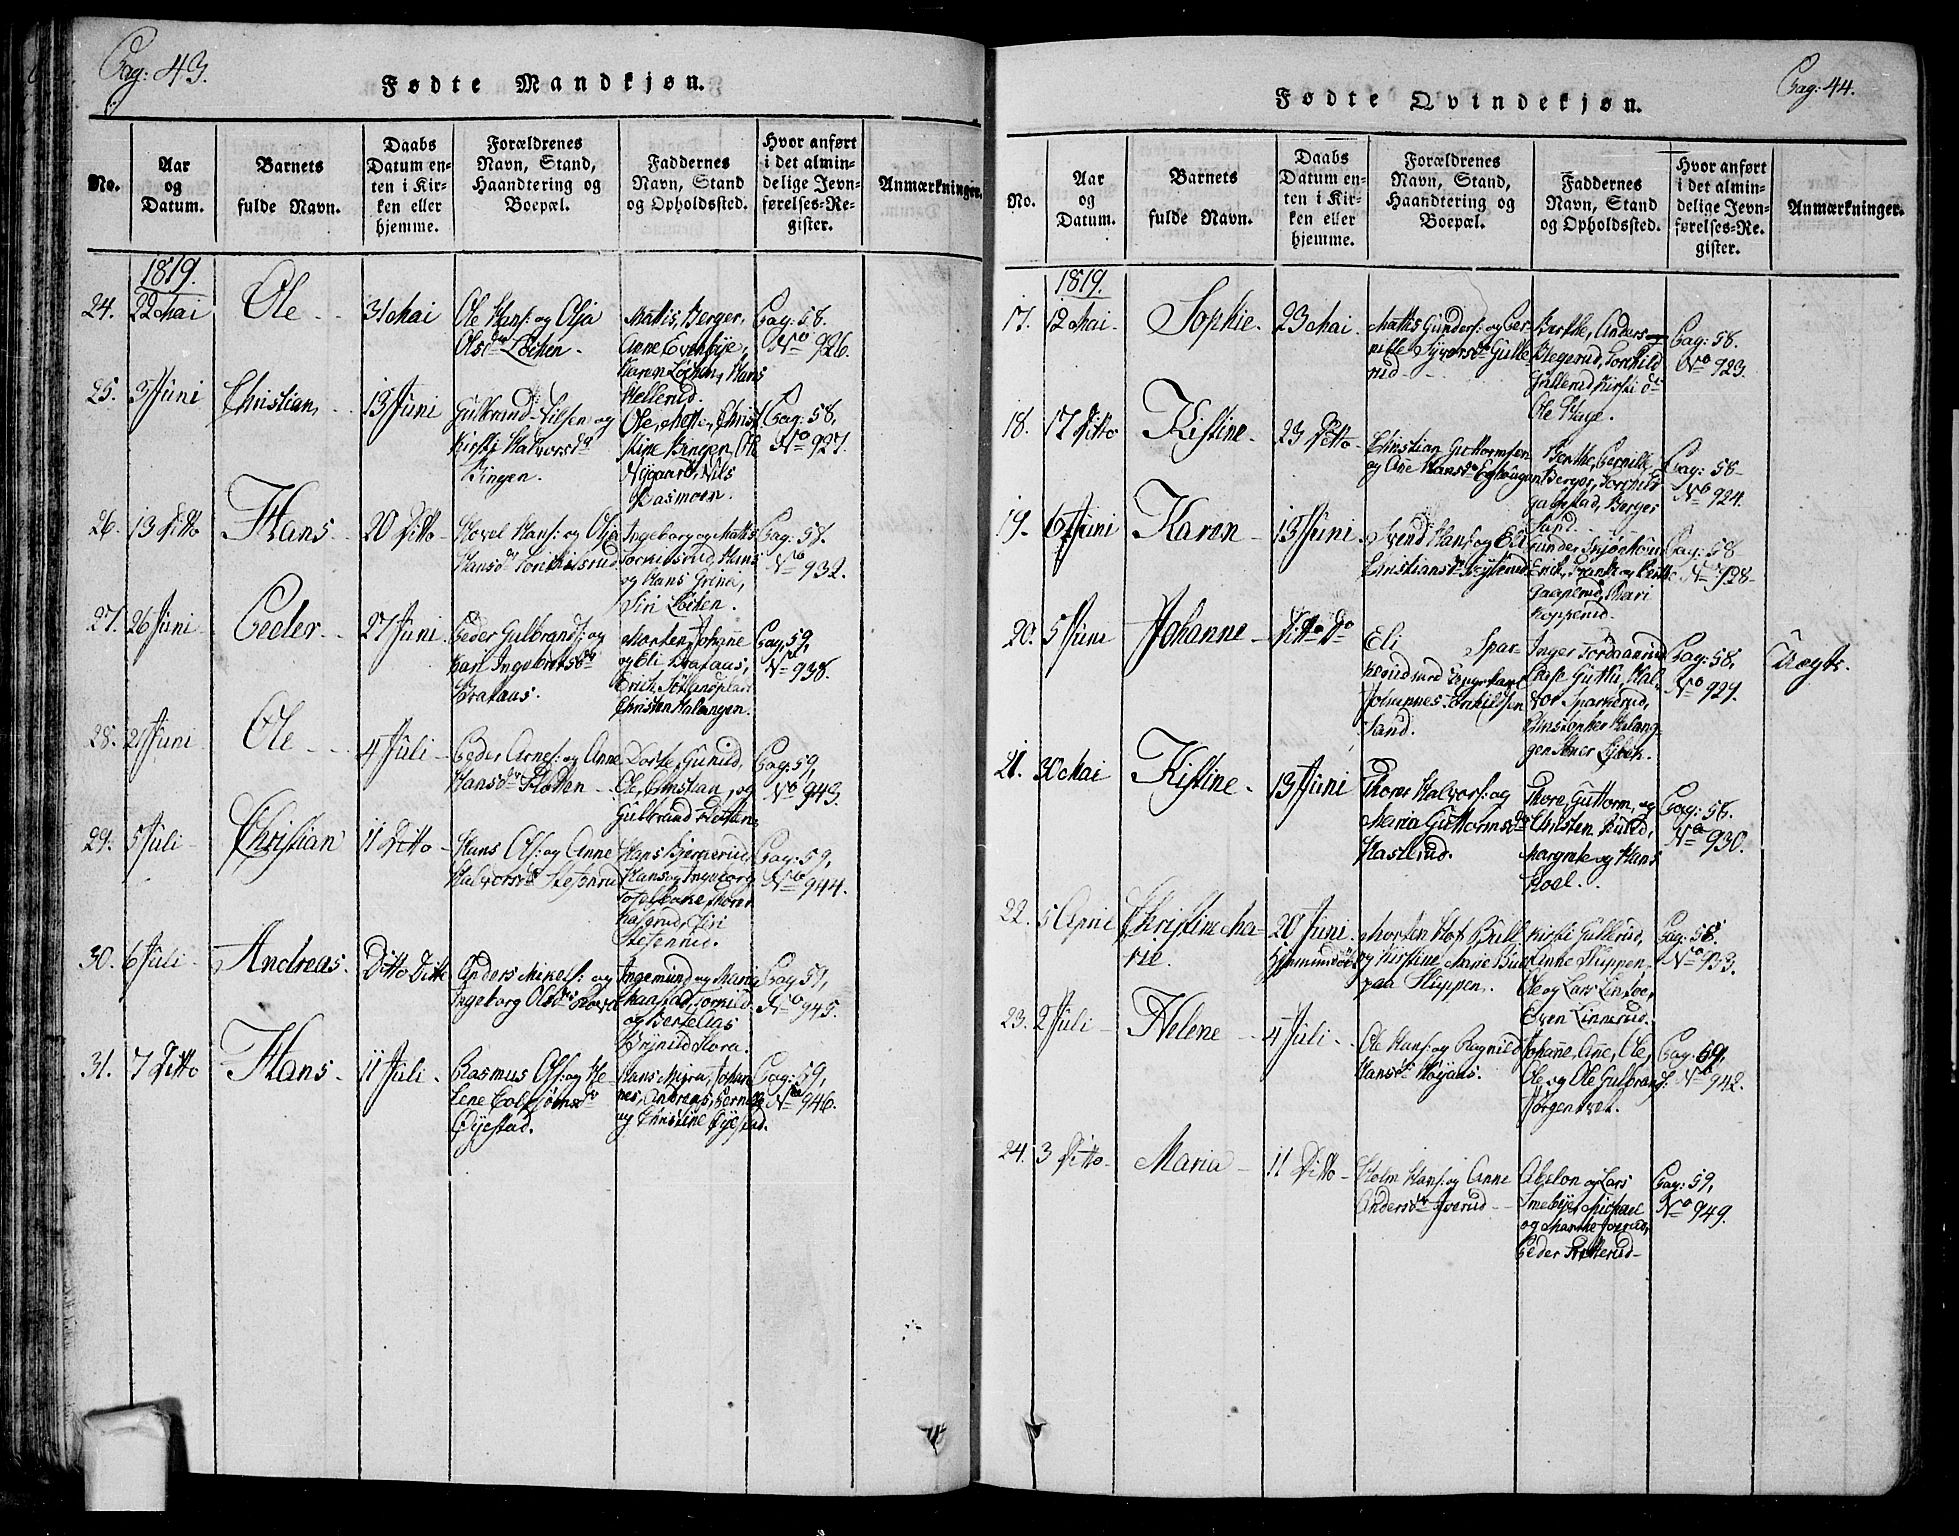 Pag: 43.
Fødte Mandkjøn.
No.
Aar
og
Datum.
Barnets
fulde Navn.
Daabs
Datum en-
ten i Kir-
ken eller
hjemme.
Forældrenes
Navn, Stand,
Haandtering og
Boepæl.
Faddernes
Navn, Stand
og Opholdssted.
Hvor anført
i det almin-
delige Jevn-
førelses-Re-
gister.
Anmærkninger.
1819.
24. 22 Mai Ole 31 Mai
Ole Hans: og
Olsdr Løcken.
Mattis Berger,
Anne Evenbye,
Karen Løcken, Hans
Hellerud.
Pag: 58.
No 926.
25. 3 Juni Christian 13 Juni
Gulbrand Nilsen og
Kirsti Halvorsdr
Bingen.
Ole, Mette, Christ
stine Bingen, Ole
Nygaard, Nils
Basmoen.
Pag: 58,
No 927.
26. 13 Ditto Hans 20 Ditto
Hovel Hans: og
Hansdr Torkilsrud
Ingeborg og Mattis
Torkilsrud, Hans
og Hans Grina,
Siri Løcken.
Pag: 58.
No 932.
27. 26 Juni Peder 27 Juni
Peder Gulbrands: og
Kari Ingebretsdr
Brataas.
Morten, Johanne
og Eli Brataas,
Erich
Christen Halvangen.
Pag, 59,
No 938.
28. 21 Juni Ole 4 Juli
Peder Arnes: og Anne
Hansdr Flotten
Dorte, Gunild,
Ole, Christian, og
Gulbrand Flotten
Pag: 59,
No 943.
29. 5 Juli Christian 11 Ditto
Hans Ols: og Anne
Halvorsdr Stefenrud
Hans Bjerkerud,
Hans og Ingeborg
Pag: 59,
No 944.
30. 6 Juli Andreas. Ditto Ditto
Anders Mikels: og
Ingeborg Olsdr
Ingemund og Maria
og
Brynild Hora.
Pag 59,
No 945.
31. 7 Ditto Hans 11 Juli
Rasmus Ols: og He-
lene Colbjørnsdr
Øyestad.
Hans Myra, Johan
nes, Andreas, Pernelle
og Christine Øyestad.
Pag: 59,
No 946.
Pag: 44.
Fødte Qvindekjøn.
No.
Aar
og
Datum.
Barnets
fulde Navn.
Daabs
Datum en-
ten i Kir-
ken eller
hjemme.
Forældrenes
Navn, Stand,
Haandtering og
Boepæl.
Faddernes
Navn, Stand
og Opholdssted.
Hvor anført
i det almin-
delige Jevn-
førelses-Re-
gister.
Anmærkninger.
1819.
17. 12 Mai Sophie 23 Mai
Mattis Gunders: og Per-
nille Syversdr Gulle
rud
Berthe, Anders
Blegerud, Torkild
Gullerud, Kirsti do
Ole Hage.
Pag: 58.
No 923.
18. 17 Ditto Kistine 23 Ditto
Christian Guttormsen
og Ane Hansdr
Berthe, Pernille,
Berger, Torkild
Berger
Sand.
Pag: 58
No 924.
19. 6 Juni Karen 13 Juni
Svend Hans: og Eli
Christiansdr
Gunder
Mari
Kopperud.
Pag: 58
No 928
20. 5 Juni Johanne Ditto Do
Eli Spar-
kerud med
Johannes Torkildsen
Sand.
Inger
Guttu, Hal-
vor Sparkerud,
Christopher Halang-
gen
Pag: 58,
No 929.
Uægte.
21. 30 Mai Kistine 13 Juni
Thore Halvors: og
Maria Guttormsdr
Haslerud.
Thore, Guttorm, og
Christen Rulud,
Margrete og Hans
Hoel.
Pag: 58.
No 930.
22. 5 April Christine Ma-
rie
20 Juni
Hjemmedøbt
Morten Hof
og Kirstine Marie
paa Huppen.
Kirsti Gullerud,
Huppen,
Ole og Lars
Even Linnerud.
Pag: 58.
No 933.
23. 2 Juli Helene 4 Juli
Ole Hans: og Ragnild
Hansdr Høyaas.
Johanne, Ane, Ole,
Ole og Ole Gulbrand
Pag: 59,
No 942.
24. 3 Ditto Maria 11 Ditto
Holm Hans: og Anne
Andersdr Iverud
Abelon og Lars
Smebye, Michael
og Marthe Iverud,
Peder
Pag: 59,
No 949.